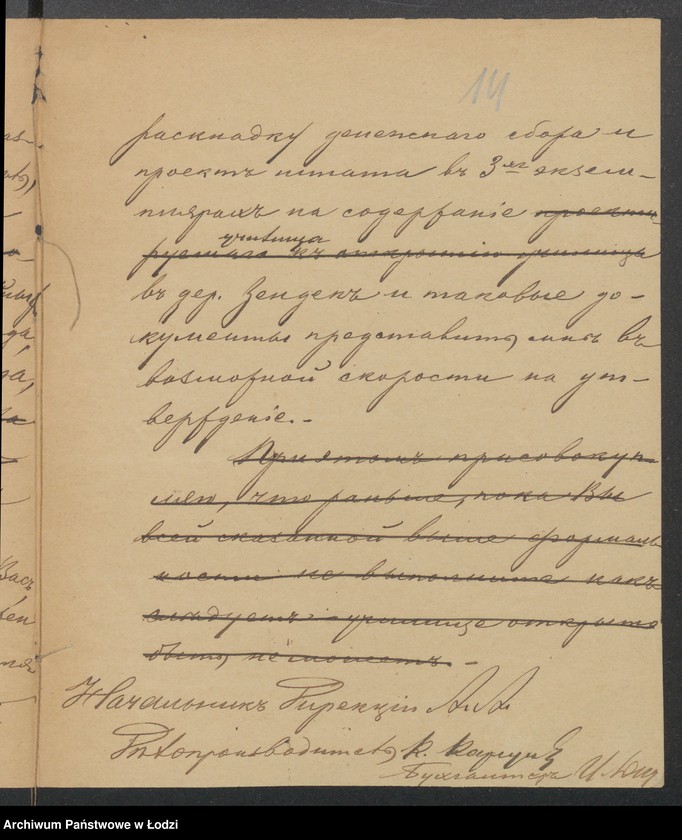 14
раскладку денежнаго сбора и
проектъ штата въ 3хъ экзем-
плярахъ на содержаніе проекти-
училища
руемаго къ открытію училища
въ дер. Зендекъ и таковые до-
кументы представить мнѣ въ
возможной скорости на ут-
вержденіе.-
При этомъ присовокуп-
ляю, что раньше, пока Вы
всей сказанной выше формаль-
ности не выполните какъ
слѣдуетъ училище открыто
быть не можетъ. -
Начальникъ Дирекціи
Дѣлопроизводитель К.
Бухгалтеръ
Archiwum Państwowe w Łodzi